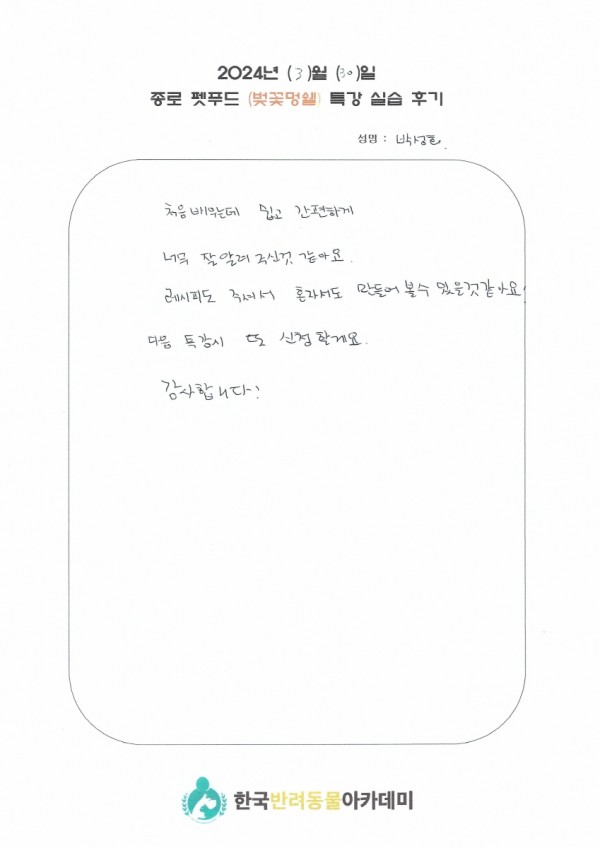 2024년 (3)월 (30)일
종로 펫푸드 (벚꽃멍쉘) 특강 실습 후기
성명 : 박성호
처음 배우는데 쉽고 간편하게
너무 잘 알려 주신것 같아요.
레시피도 주셔서 혼자서도 만들어 볼수 있을것같아요!
다음 특강시 또 신청할게요.
감사합니다!
한국반려동물아카데미